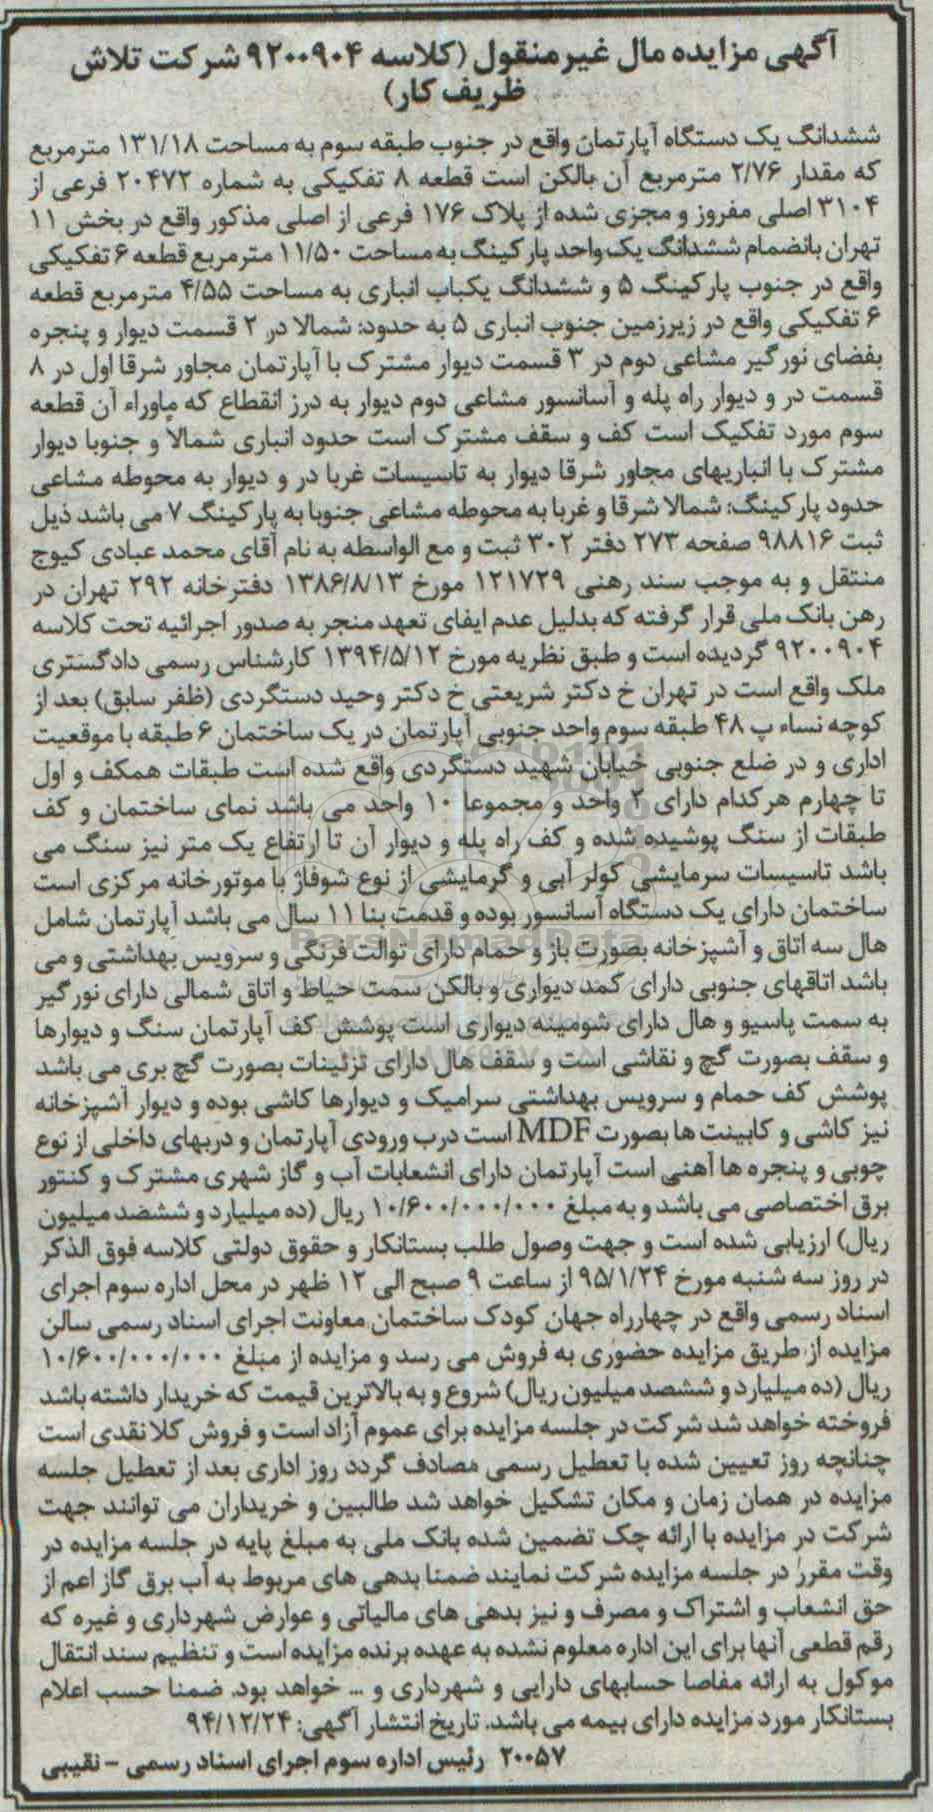 آگهی مزایده مال غیرمنقول (کلاسه ۹۲۰۰۹۰۴ شرکت تلاش
ظریف کار)
ششدانگ یک دستگاه آپارتمان واقع در جنوب طبقه سوم به مساحت ۱۳۱/۱۸ مترمربع
که مقدار ۲/۷۶ مترمربع آن بالکن است قطعه ۸ تفکیکی به شماره ۲۰۴۷۲ فرعی از
۳۱۰۴ اصلی مفروز و مجزی شده از پلاک ۱۷۶ فرعی از اصلی مذکور واقع در بخش ۱۱
تهران بانضمام ششدانگ یک واحد پارکینگ به مساحت ۱۱/۵۰ مترمربع قطعه ۶ تفکیکی
واقع در جنوب پارکینگ ۵ و ششدانگ یکباب انباری به مساحت ۴/۵۵ مترمربع قطعه
۶ تفکیکی واقع در زیرزمین جنوب انباری ۵ به حدود: شمالا در ۲ قسمت دیوار و پنجره
بفضای نورگیر مشاعی دوم در ۳ قسمت دیوار مشترک با آپارتمان مجاور شرقا اول در ۸
قسمت در و دیوار راه پله و آسانسور مشاعی دوم دیوار به درز انقطاع که ماوراء آن قطعه
سوم مورد تفکیک است کف و سقف مشترک است حدود انباری شمالا و جنوبا دیوار
مشترک با انباریهای مجاور شرقا دیوار به تاسیسات غربا در و دیوار به محوطه مشاعی
حدود پارکینگ: شمالا شرقا و غربا به محوطه مشاعی جنوبا به پارکینگ ۷ می باشد ذیل
ثبت ۹۸۸۱۶ صفحه ۲۷۳ دفتر ۳۰۲ ثبت و مع الواسطه به نام آقای محمد عبادی کیوج
منتقل و به موجب سند رهنی ۱۲۱۷۲۹ مورخ ۱۳۸۶/۸/۱۳ دفترخانه ۲۹۲ تهران در
رهن بانک ملی قرار گرفته که بدلیل عدم ایفای تعهد منجر به صدور اجرائیه تحت کلاسه
۹۲۰۰۹۰۴ گردیده است و طبق نظریه مورخ ۱۳۹۴/۵/۱۲ کارشناس رسمی دادگستری
ملک واقع است در تهران خ دکتر شریعتی خ دکتر وحید دستگردی (ظفر سابق) بعد از
کوچه نساء پ ۴۸ طبقه سوم واحد جنوبی آپارتمان در یک ساختمان ۶ طبقه با موقعیت
اداری و در ضلع جنوبی خیابان شهید دستگردی واقع شده است طبقات همکف و اول
تا چهارم هرکدام دارای ۲ واحد و مجموعا ۱۰ واحد می باشد نمای ساختمان و کف
طبقات از سنگ پوشیده شده و کف راه پله و دیوار آن تا ارتفاع یک متر نیز سنگ می
باشد تاسیسات سرمایشی کولر آبی و گرمایشی از نوع شوفاژ با موتورخانه مرکزی است
ساختمان دارای یک دستگاه آسانسور بوده و قدمت بنا ۱۱ سال می باشد آپارتمان شامل
هال سه اتاق و آشپزخانه بصورت باز و حمام دارای توالت فرنگی و سرویس بهداشتی و می
باشد اتاقهای جنوبی دارای کمد دیواری و بالکن سمت حیاط و اتاق شمالی دارای نورگیر
به سمت پاسیو و هال دارای شومینه دیواری است پوشش کف آپارتمان سنگ و دیوارها
و سقف بصورت گچ و نقاشی است و سقف هال دارای تزئینات بصورت گچ بری می باشد
پوشش کف حمام و سرویس بهداشتی سرامیک و دیوارها کاشی بوده و دیوار آشپزخانه
نیز کاشی و کابینت ها بصورت MDF است درب ورودی آپارتمان و دربهای داخلی از نوع
چوبی و پنجره ها آهنی است آپارتمان دارای انشعابات آب و گاز شهری مشترک و کنتور
برق اختصاصی می باشد و به مبلغ ۱۰/۶۰۰/۰۰۰/۰۰۰ ریال (ده میلیارد و ششصد میلیون
ریال) ارزیابی شده است و جهت وصول طلب بستانکار و حقوق دولتی کلاسه فوق الذکر
در روز سه شنبه مورخ ۹۵/۱/۲۴ از ساعت ۹ صبح الی ۱۲ ظهر در محل اداره سوم اجرای
اسناد رسمی واقع در چهارراه جهان کودک ساختمان معاونت اجرای اسناد رسمی سالن
مزایده از طریق مزایده حضوری به فروش می رسد و مزایده از مبلغ ۱۰/۶۰۰/۰۰۰/۰۰۰
ریال (ده میلیارد و ششصد میلیون ریال) شروع و به بالاترین قیمت که خریدار داشته باشد
فروخته خواهد شد شرکت در جلسه مزایده برای عموم آزاد است و فروش کلا نقدی است
چنانچه روز تعیین شده با تعطیل رسمی مصادف گردد روز اداری بعد از تعطیل جلسه
مزایده در همان زمان و مکان تشکیل خواهد شد طالبین و خریداران می توانند جهت
شرکت در مزایده با ارائه چک تضمین شده بانک ملی به مبلغ پایه در جلسه مزایده در
وقت مقرر در جلسه مزایده شرکت نمایند ضمنا بدهی های مربوط به آب برق گاز اعم از
حق انشعاب و اشتراک و مصرف و نیز بدهی های مالیاتی و عوارض شهرداری و غیره که
رقم قطعی آنها برای این اداره معلوم نشده به عهده برنده مزایده است و تنظیم سند انتقال
موکول به ارائه مفاصا حسابهای دارایی و شهرداری و ... خواهد بود. ضمنا حسب اعلام
بستانکار مورد مزایده دارای بیمه می باشد. تاریخ انتشار آگهی: ۹۴/۱۲/۲۴
۲۰۰۵۷ رئیس اداره سوم اجرای اسناد رسمی - نقیبی
ParsNamadData